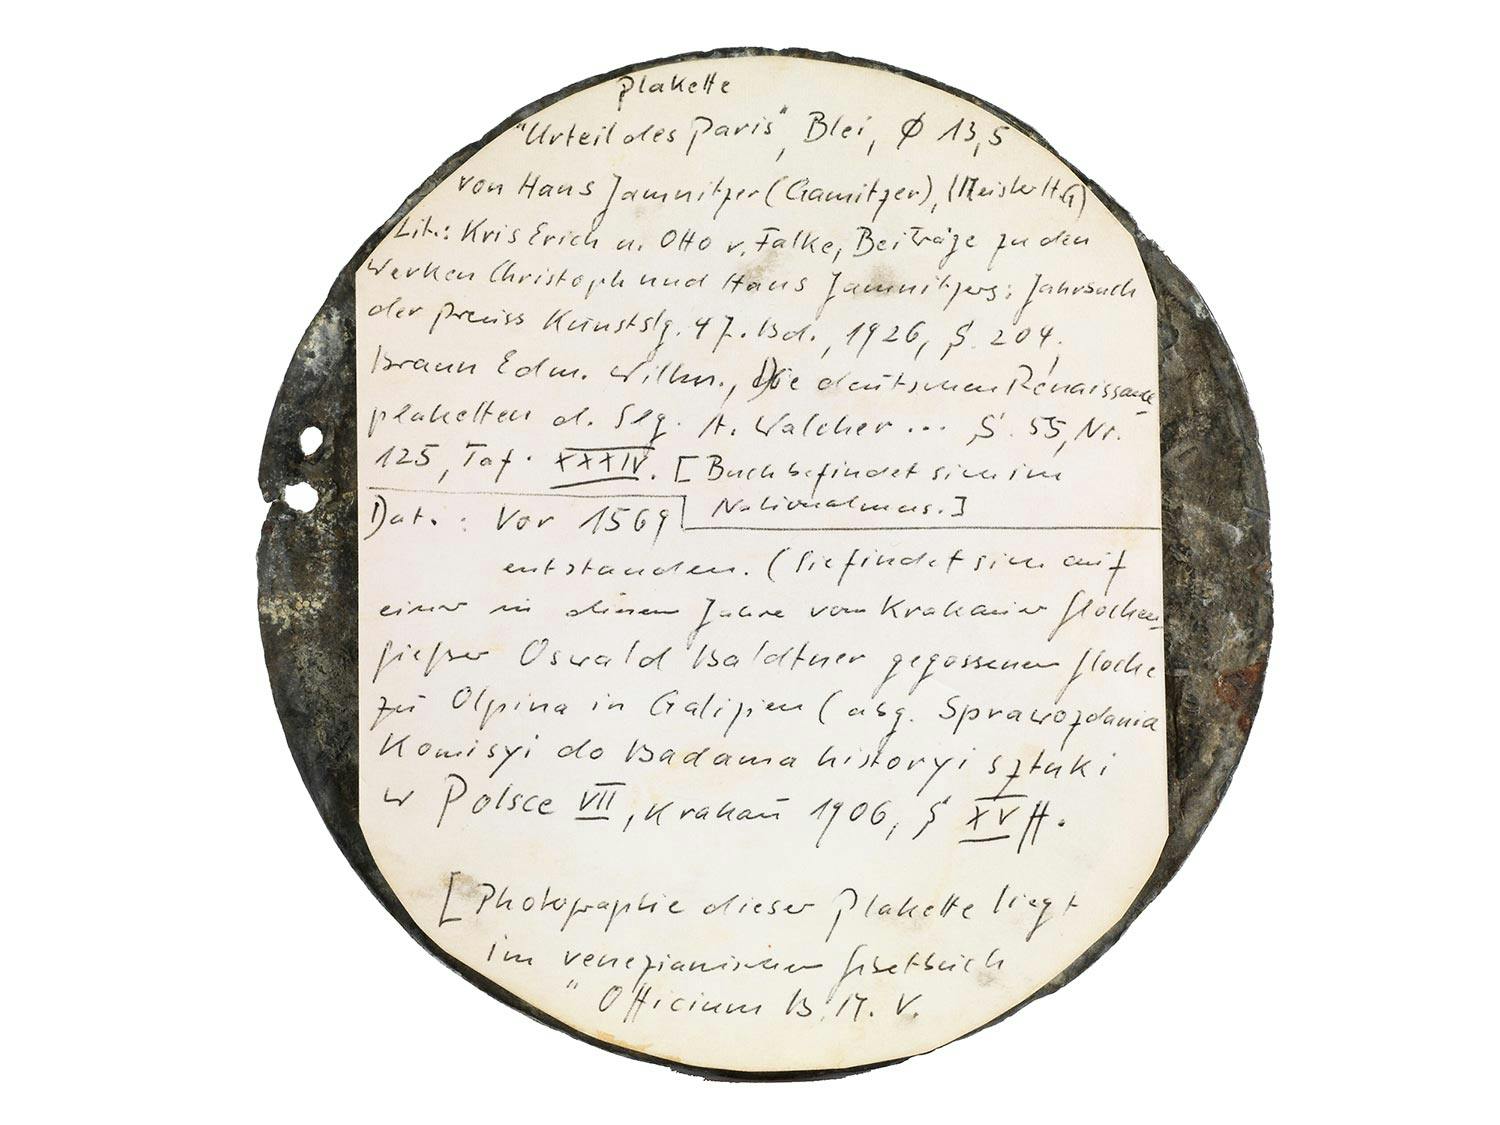 Plakette
"Urteil des Paris", Blei, Ø 13,5
von Hans Jamnitzer (Gamitzer), (Meister H.G)
Lit.: Kris Erich u. Otto v. Falke, Beiträge zu den
Werken Christoph und Hans Jamnitzers: Jahrbuch
der Preuss Kunstslg. 47. Bd., 1926, S. 204.
Braun Edm. Wilhm., Die deutschen Renaissance-
plaketten d. Slg. A. Walcher ... S. 55, Nr.
125, Taf. XXXIV. [Buch befindet sich im
Nationalmus.]
Dat.: Vor 1569
entstanden. (Sie findet sich auf
einer in diesem Jahre vom Krakauer Glocken-
gießer Oswald Baldtner gegossenen Glocke
zu Olpina in Galizien (abg. Sprawozdania
Komisyi do Badama historyi sztuki
w Polsce VII, Krakau 1906, S XV ff.
[Photographie dieser Plakette liegt
im venezianischen Gebetbuch
"Officium B.M.V.